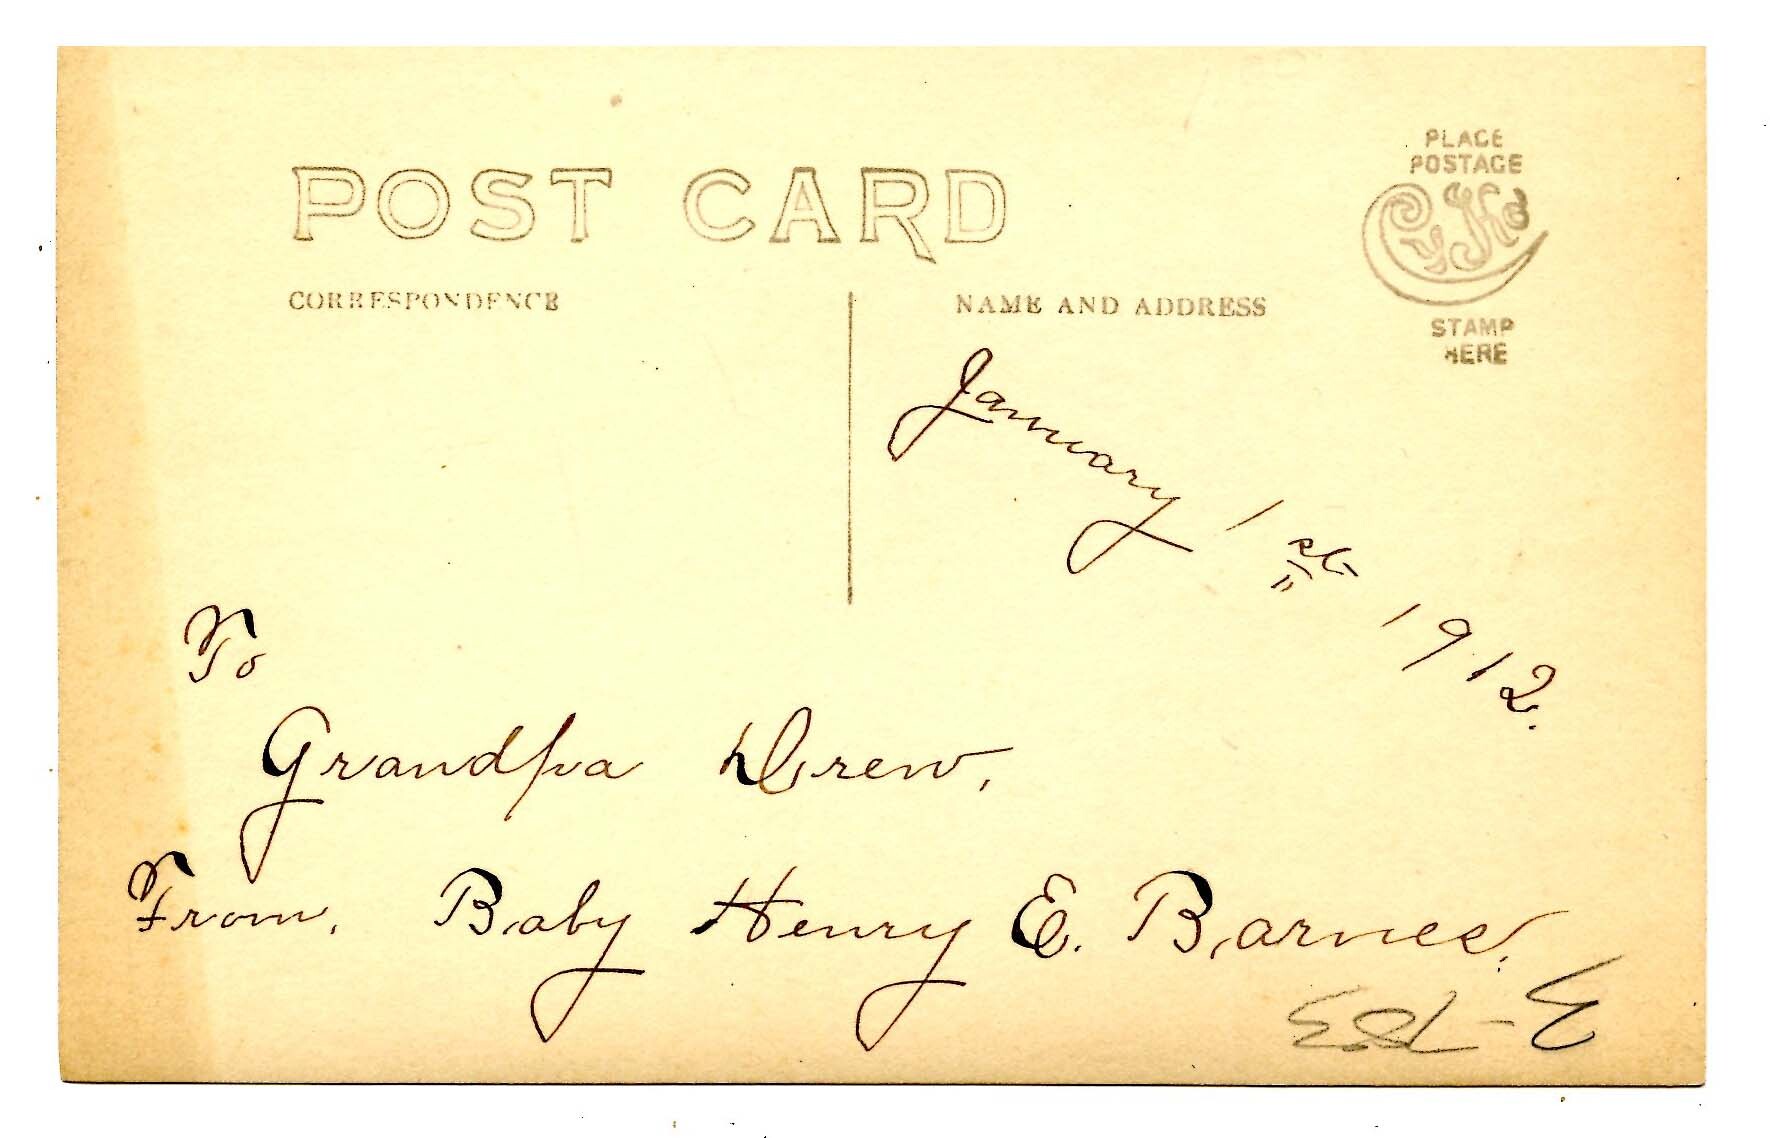 POST CARD
CORRESPONDENCE
NAME AND ADDRESS
PLACE
POSTAGE
CyKo
STAMP
HERE
January 1st 1912.
To
Grandpa Drew,
From, Baby Henry E. Barnes.